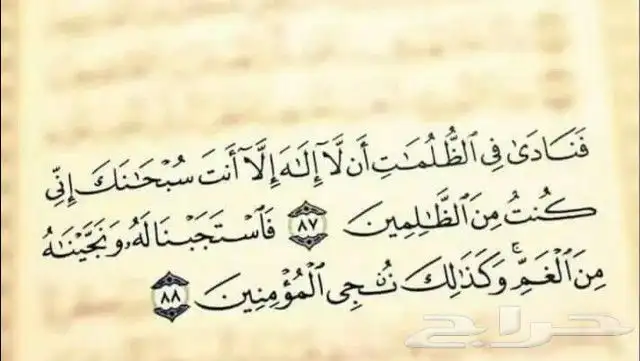 فَنَادَىٰ فِي ٱلظُّلُمَٰتِ أَن لَّآ إِلَٰهَ إِلَّآ أَنتَ سُبْحَٰنَكَ إِنِّي
كُنتُ مِنَ ٱلظَّٰلِمِينَ ٨٧ فَٱسْتَجَبْنَا لَهُۥ وَنَجَّيْنَٰهُ
مِنَ ٱلْغَمِّ ۚ وَكَذَٰلِكَ نُۨجِي ٱلْمُؤْمِنِينَ ٨٨
حراج